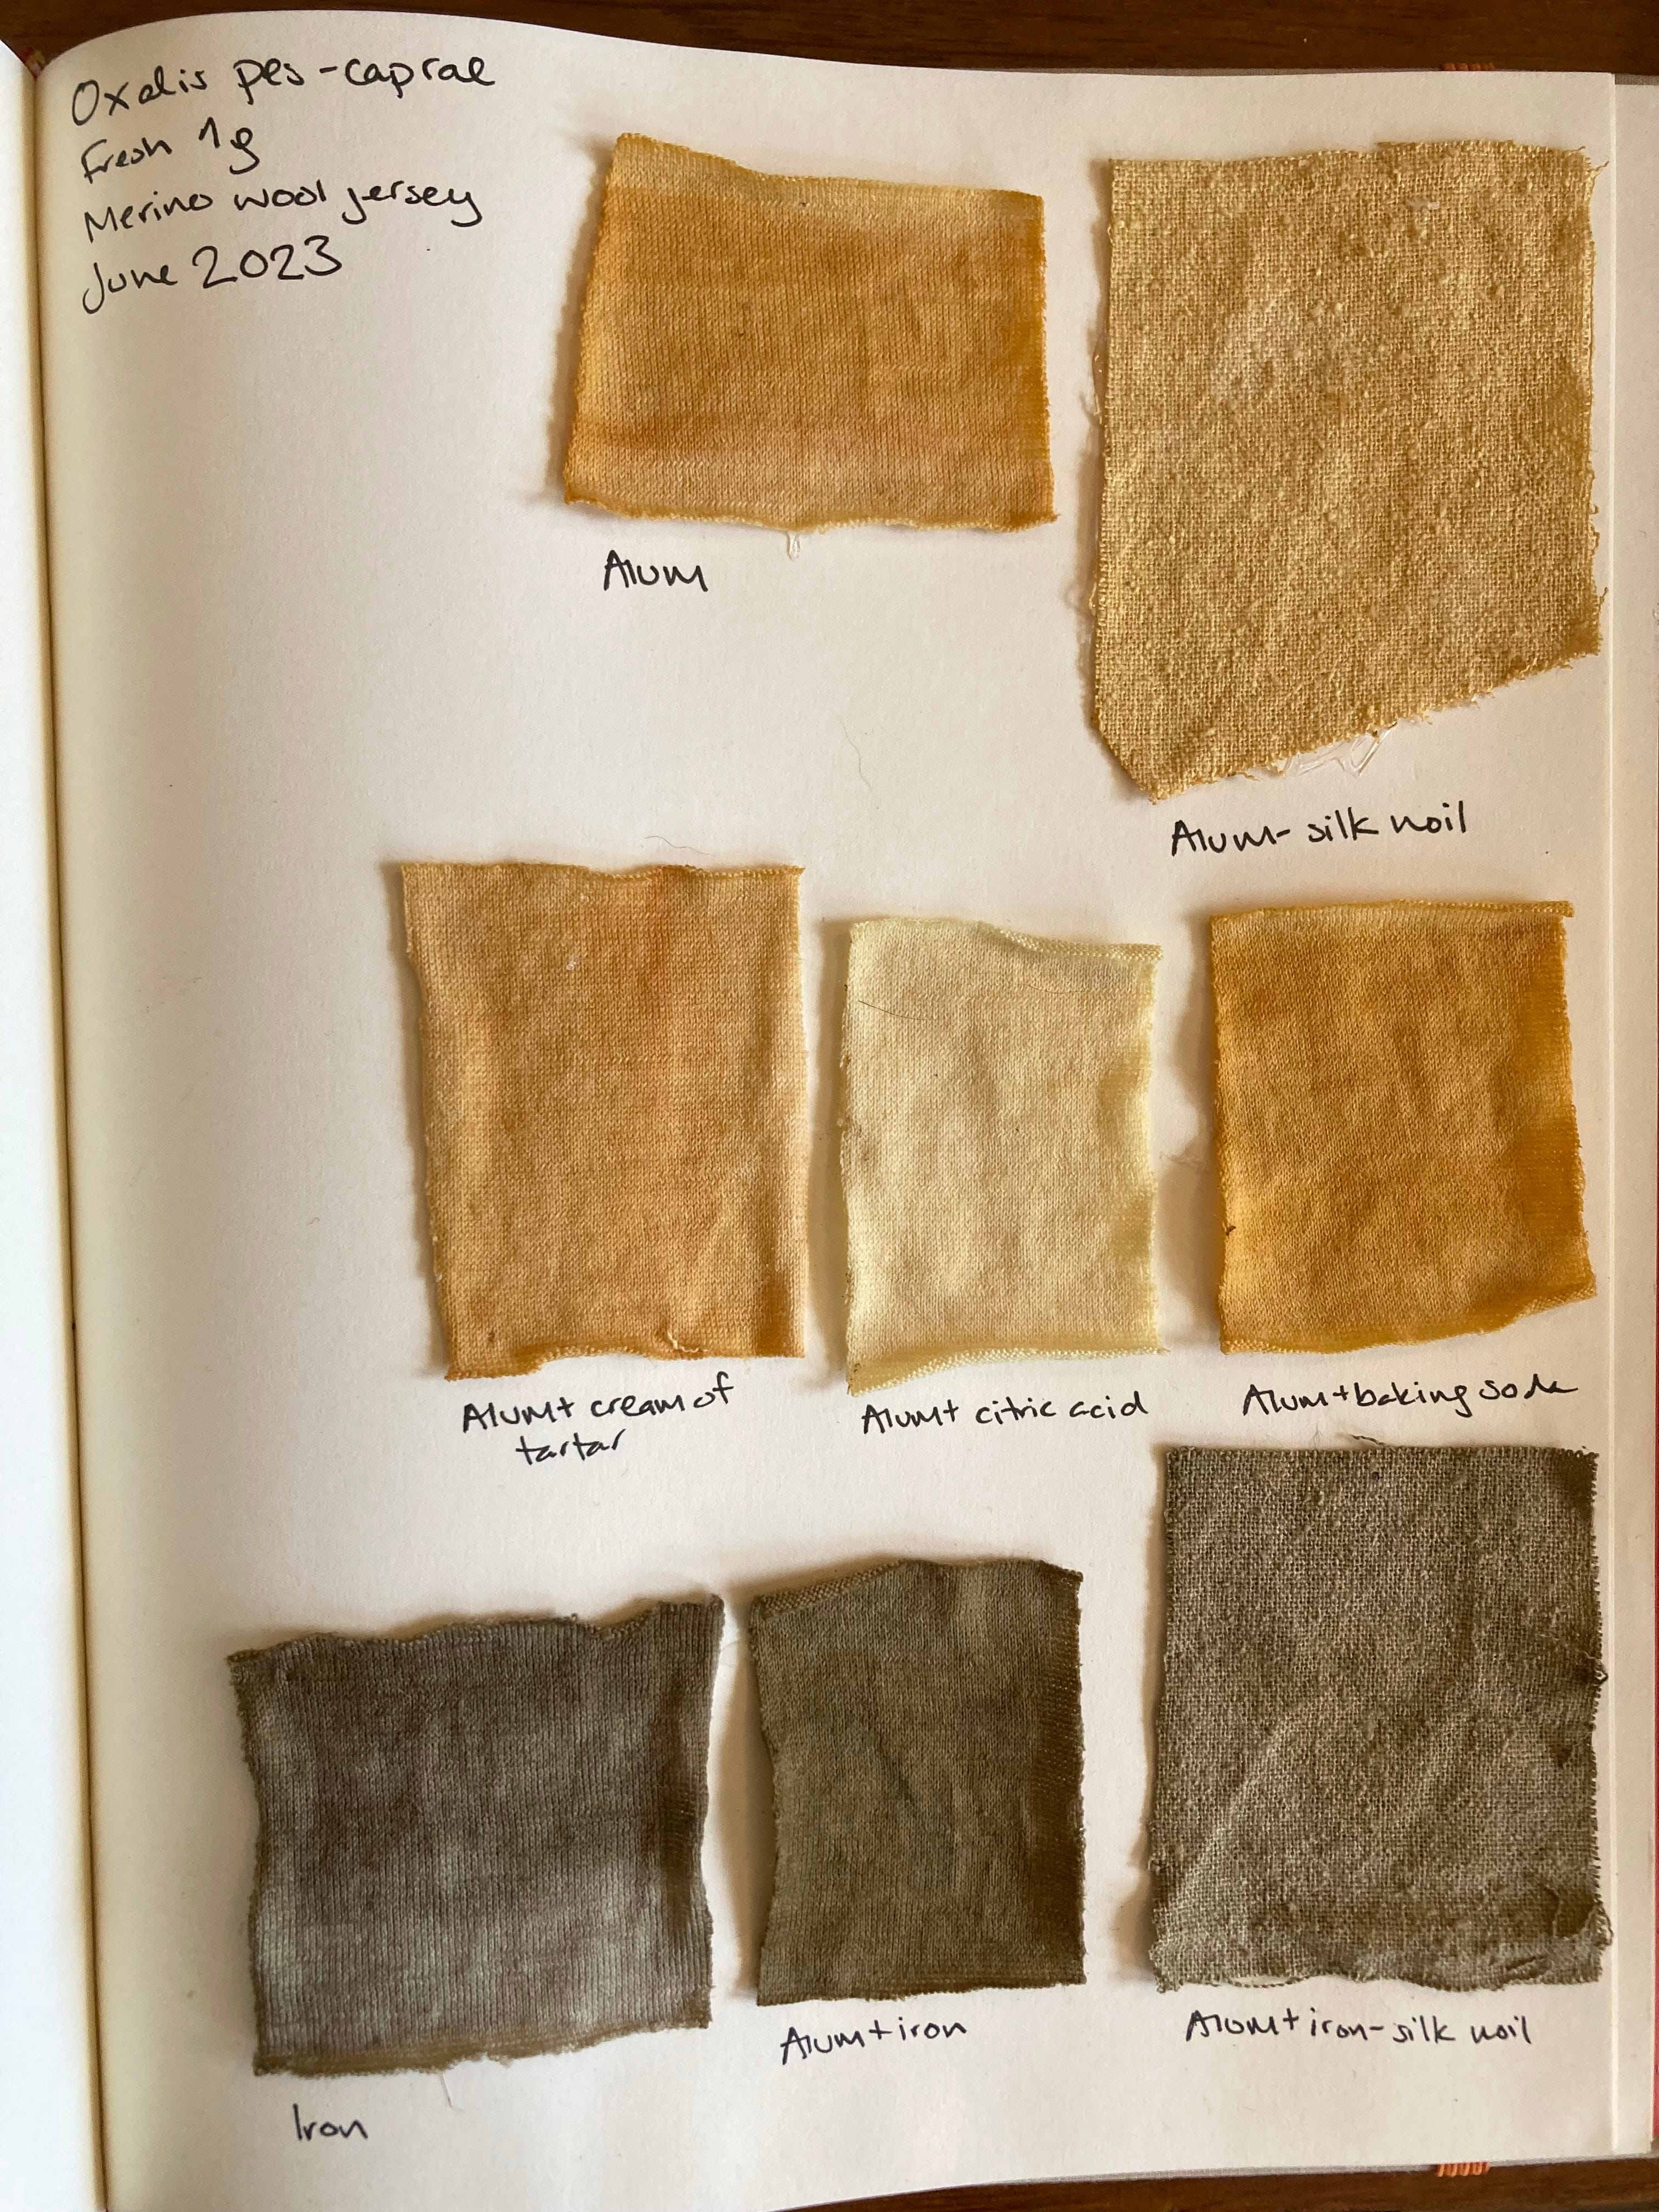 Oxalis pes-caprae
Fresh 1g
Merino wool jersey
June 2023
Alum
Alum- silk noil
Alum+ cream of
tartar
Alum+ citric acid
Alum+baking soda
Iron
Alum+iron
Alum+iron-silk noil